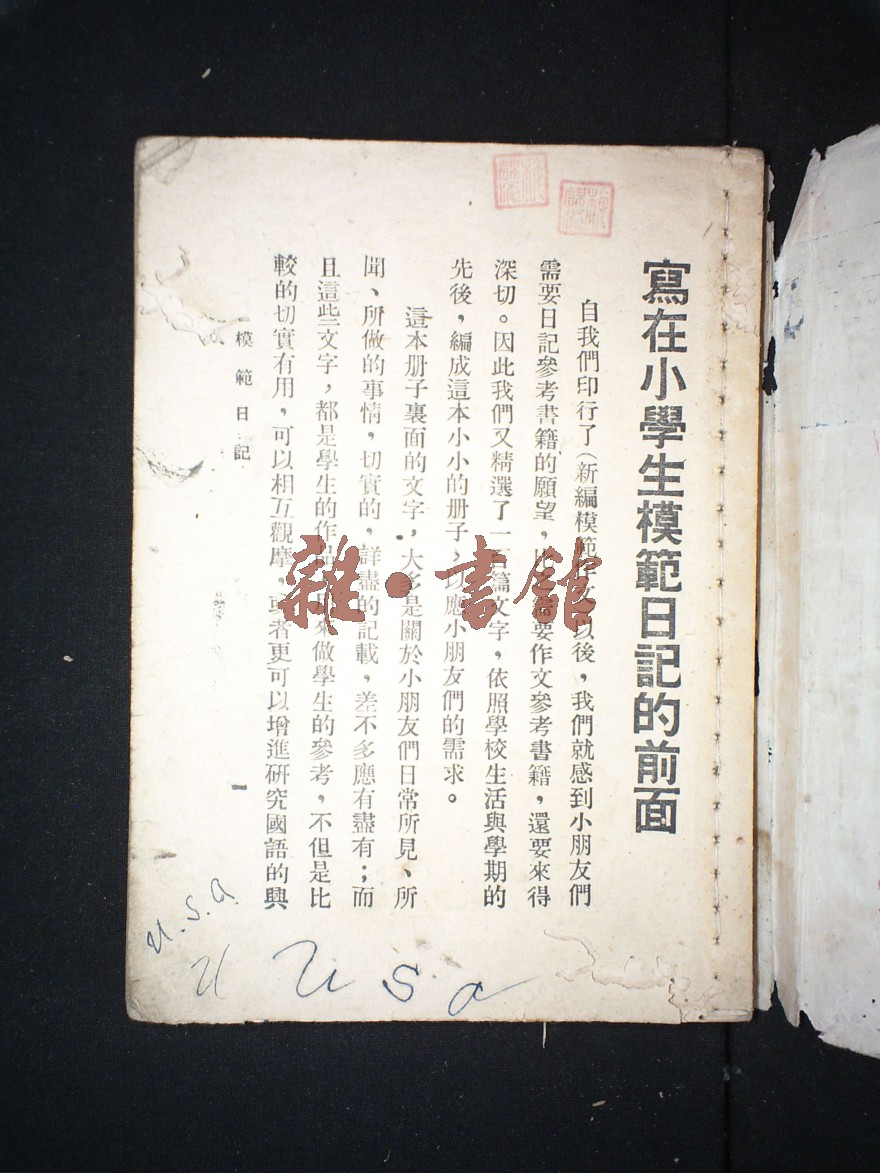 寫在小學生模範日記的前面
自我們印行了(新編模範作文以後,我們就感到小朋友們
需要日記參考書籍的願望,比需要作文參考書籍,還要來得
深切。因此我們又精選了一百篇文字,依照學校生活與學期的
先後,編成這本小小的册子,以應小朋友們的需求。
這本册子裏面的文字,大多是關於小朋友們日常所見、所
聞、所做的事情,切實的,詳盡的記載,差不多應有盡有;而
且這些文字,都是學生的作品,用來做學生的參考,不但是比
較的切實有用,可以相互觀摩,或者更可以增進研究國語的興
模範日記
一
雜·書館
U.S.a
U
U s a